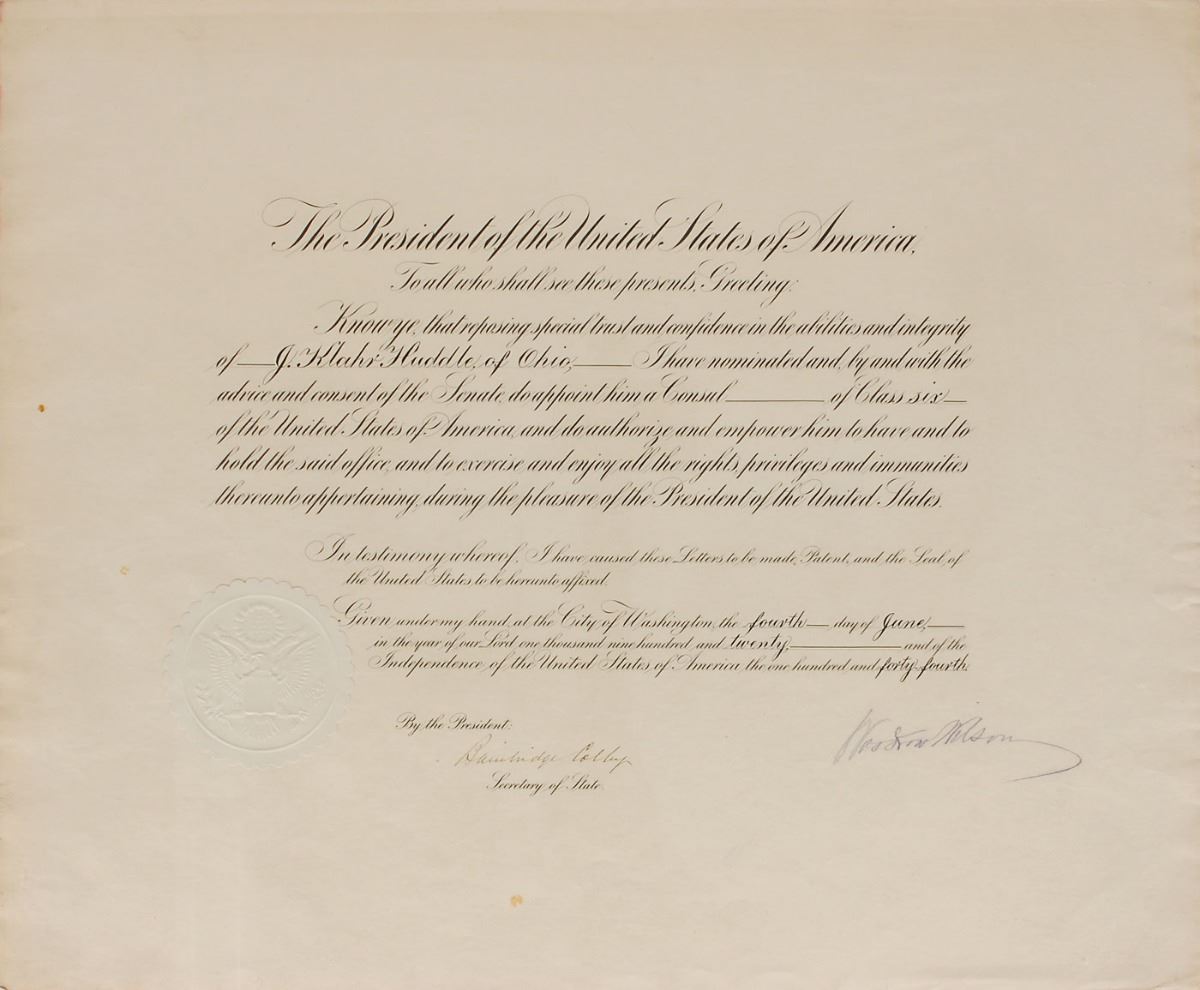 The President of the United States of America,
To all who shall see these presents, Greeting:
Know ye, that reposing special trust and confidence in the abilities and integrity
of J. Klahr Huddle, of Ohio, I have nominated and, by and with the
advice and consent of the Senate, do appoint him a Consul of Class six
of the United States of America, and do authorize and empower him to have and to
hold the said office, and to exercise and enjoy all the rights, privileges and immunities
thereunto appertaining, during the pleasure of the President of the United States.
In testimony whereof, I have caused these Letters to be made Patent, and the Seal of
the United States to be hereunto affixed.
Given under my hand, at the City of Washington, the fourth day of June,
in the year of our Lord one thousand nine hundred and twenty, and of the
Independence of the United States of America, the one hundred and forty-fourth.
By the President:
Woodrow Wilson
Bainbridge Colby
Secretary of State.